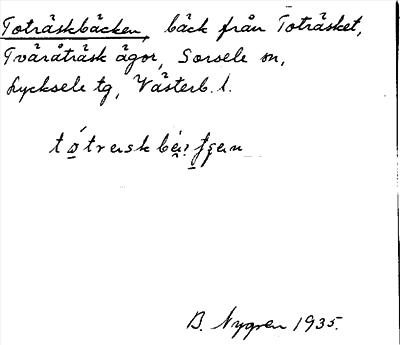 Toträskbäcken, bäck från Toträsket,
Tväråträsk ägor, Sorsele sn,
Lycksele tg, Västerb. l.
B. Nygren 1935.